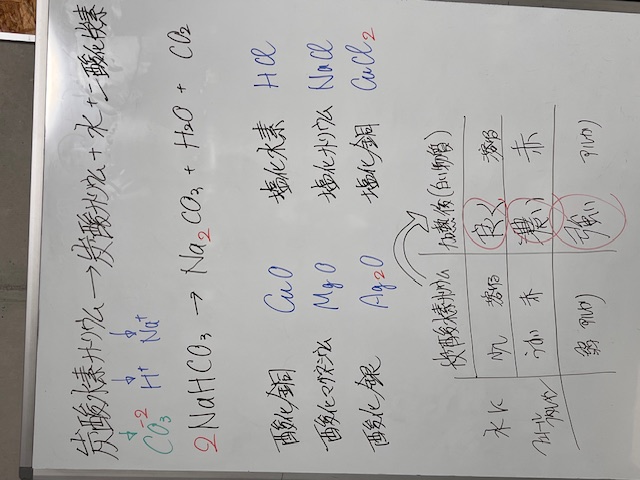 炭酸水素ナトリウム→炭酸ナトリウム+水+二酸化炭素
CO₃⁻² H⁺ Na⁺
2NaHCO₃ → Na₂CO₃ + H₂O + CO₂
酸化銅 CuO 塩化水素 HCl
酸化マグネシウム MgO 塩化ナトリウム NaCl
酸化銀 Ag₂O 塩化銅 CuCl₂
炭酸水素ナトリウム 加熱後(白い物質)
水に 少し 溶ける 良く 溶ける
フェノールフタレイン うすい 赤 濃い 赤
弱 アルカリ 強い アルカリ